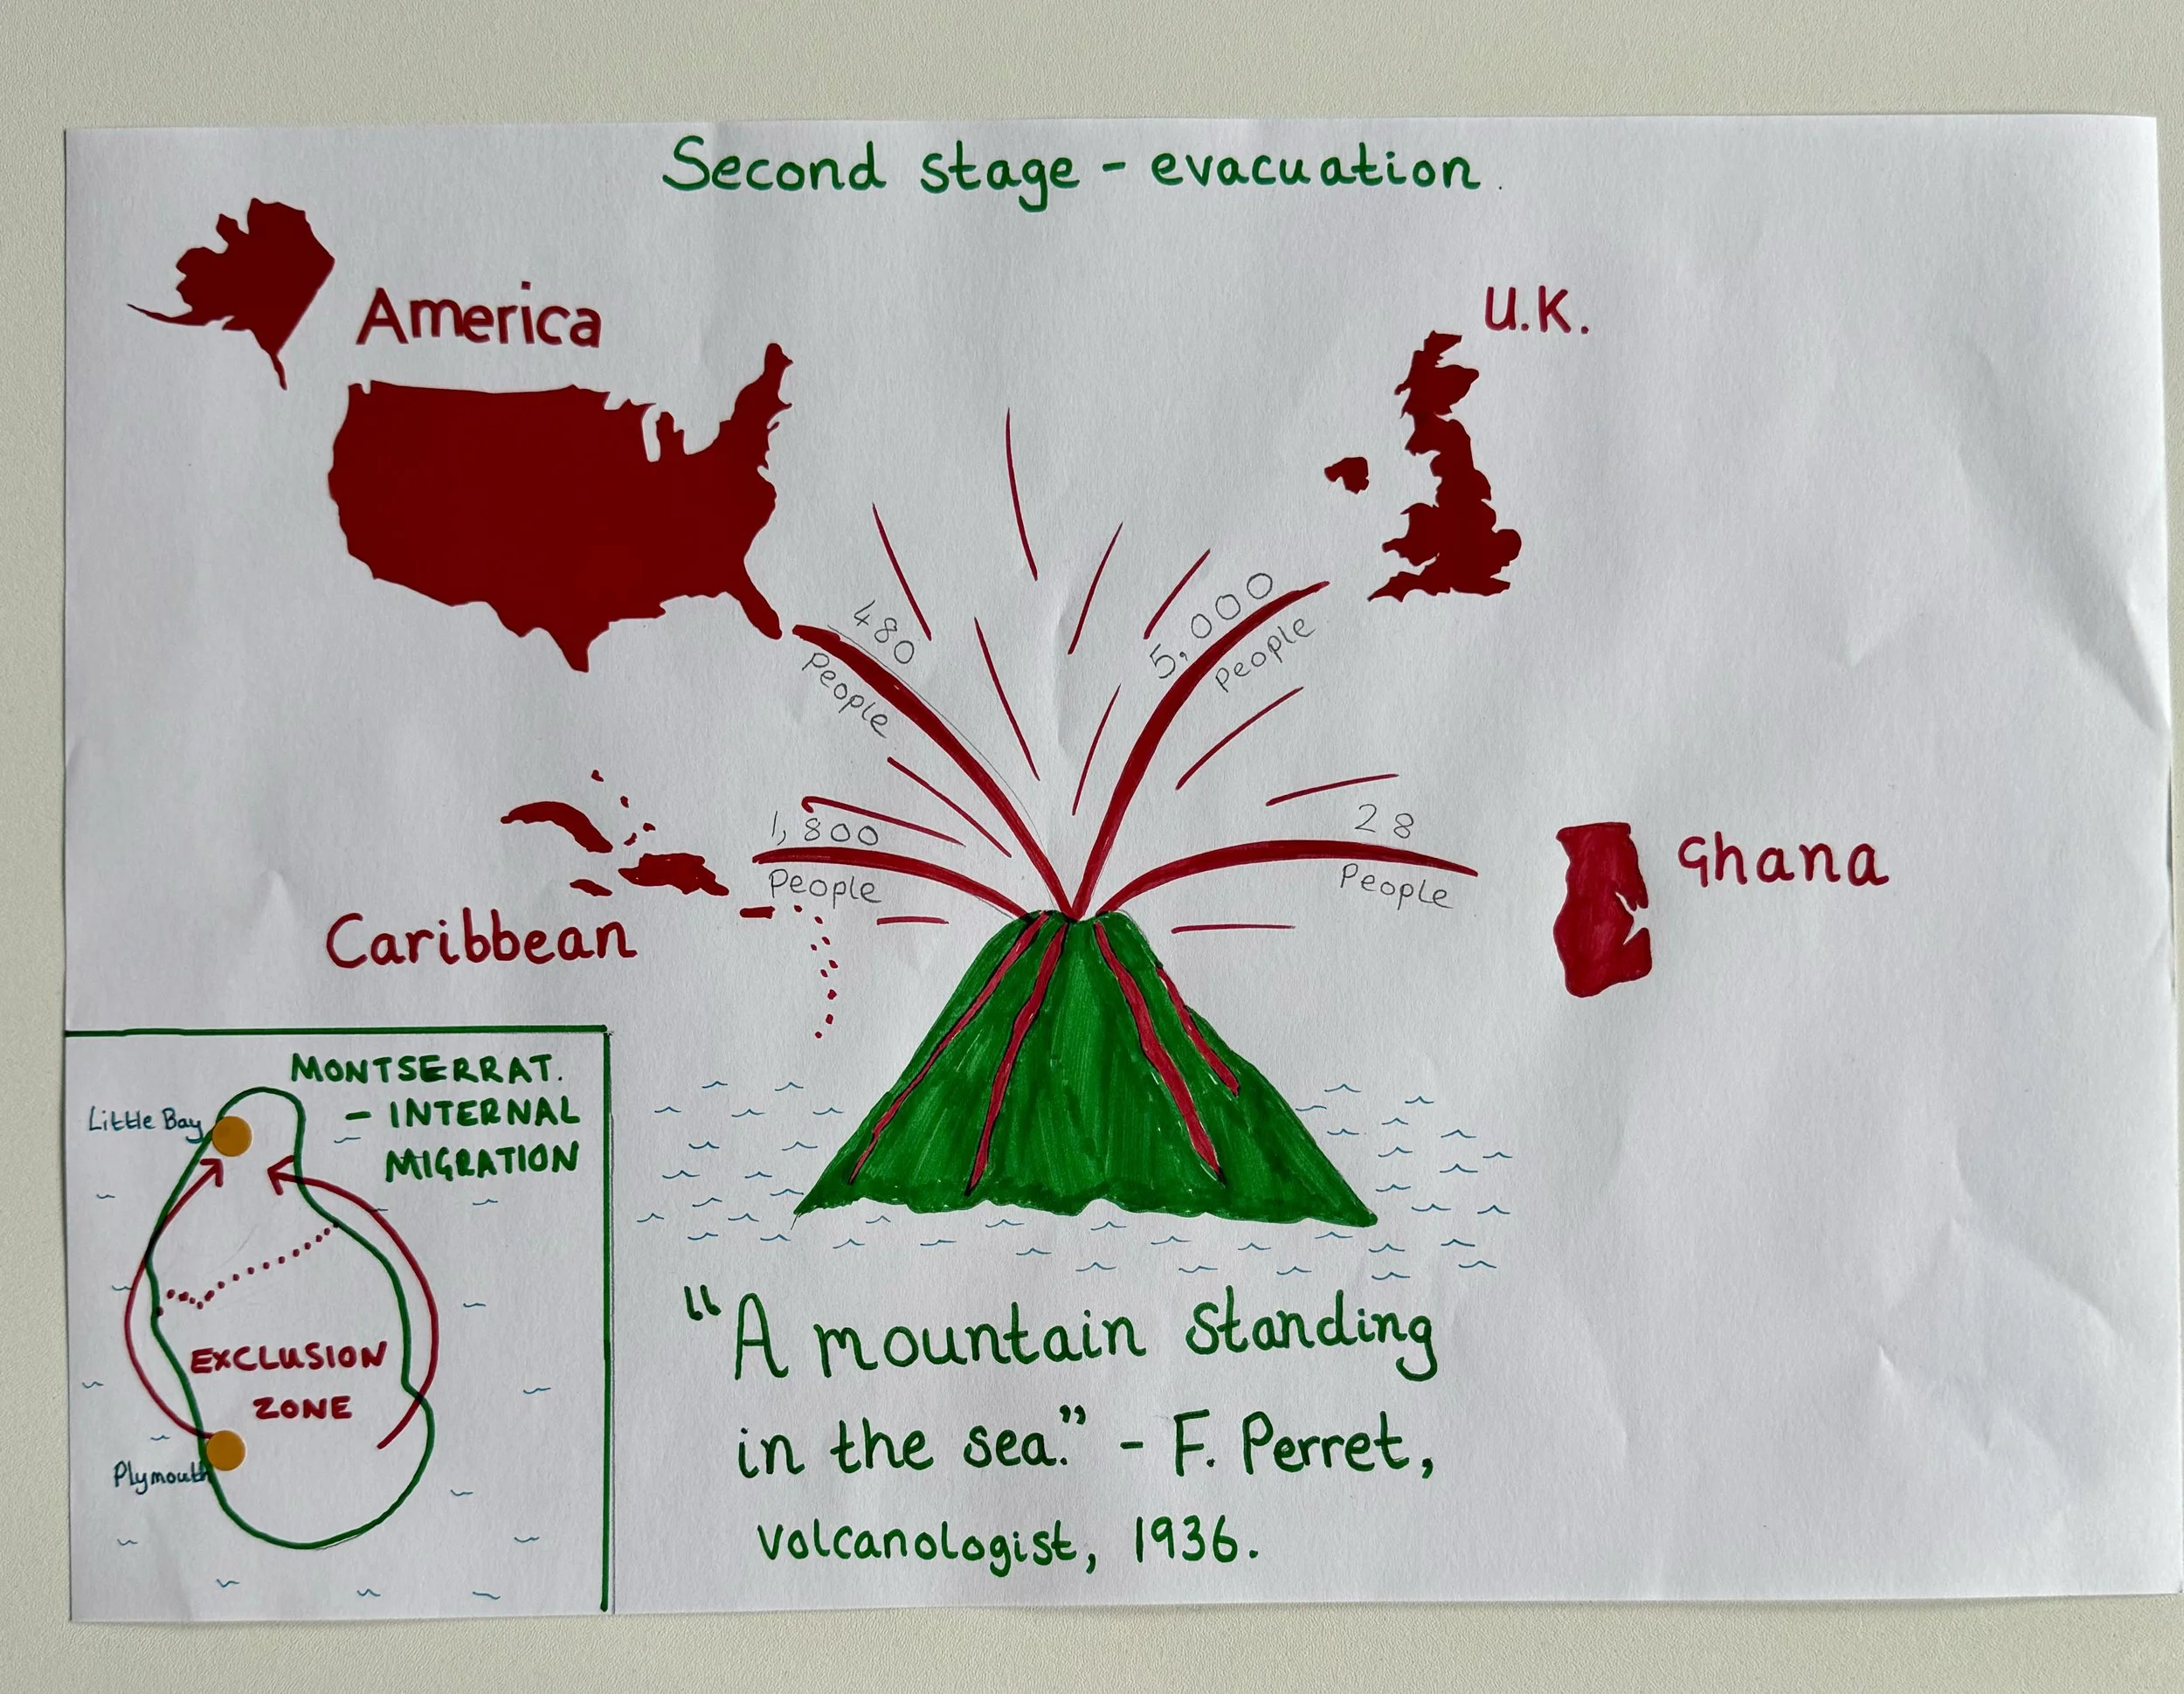 Second stage - evacuation.
America
U.K.
480
People
5,000
People
1,800
People
28
People
Caribbean
Ghana
MONTSERRAT.
- INTERNAL
MIGRATION
Little Bay
EXCLUSION
ZONE
Plymouth
"A mountain standing
in the sea." - F. Perret,
volcanologist, 1936.